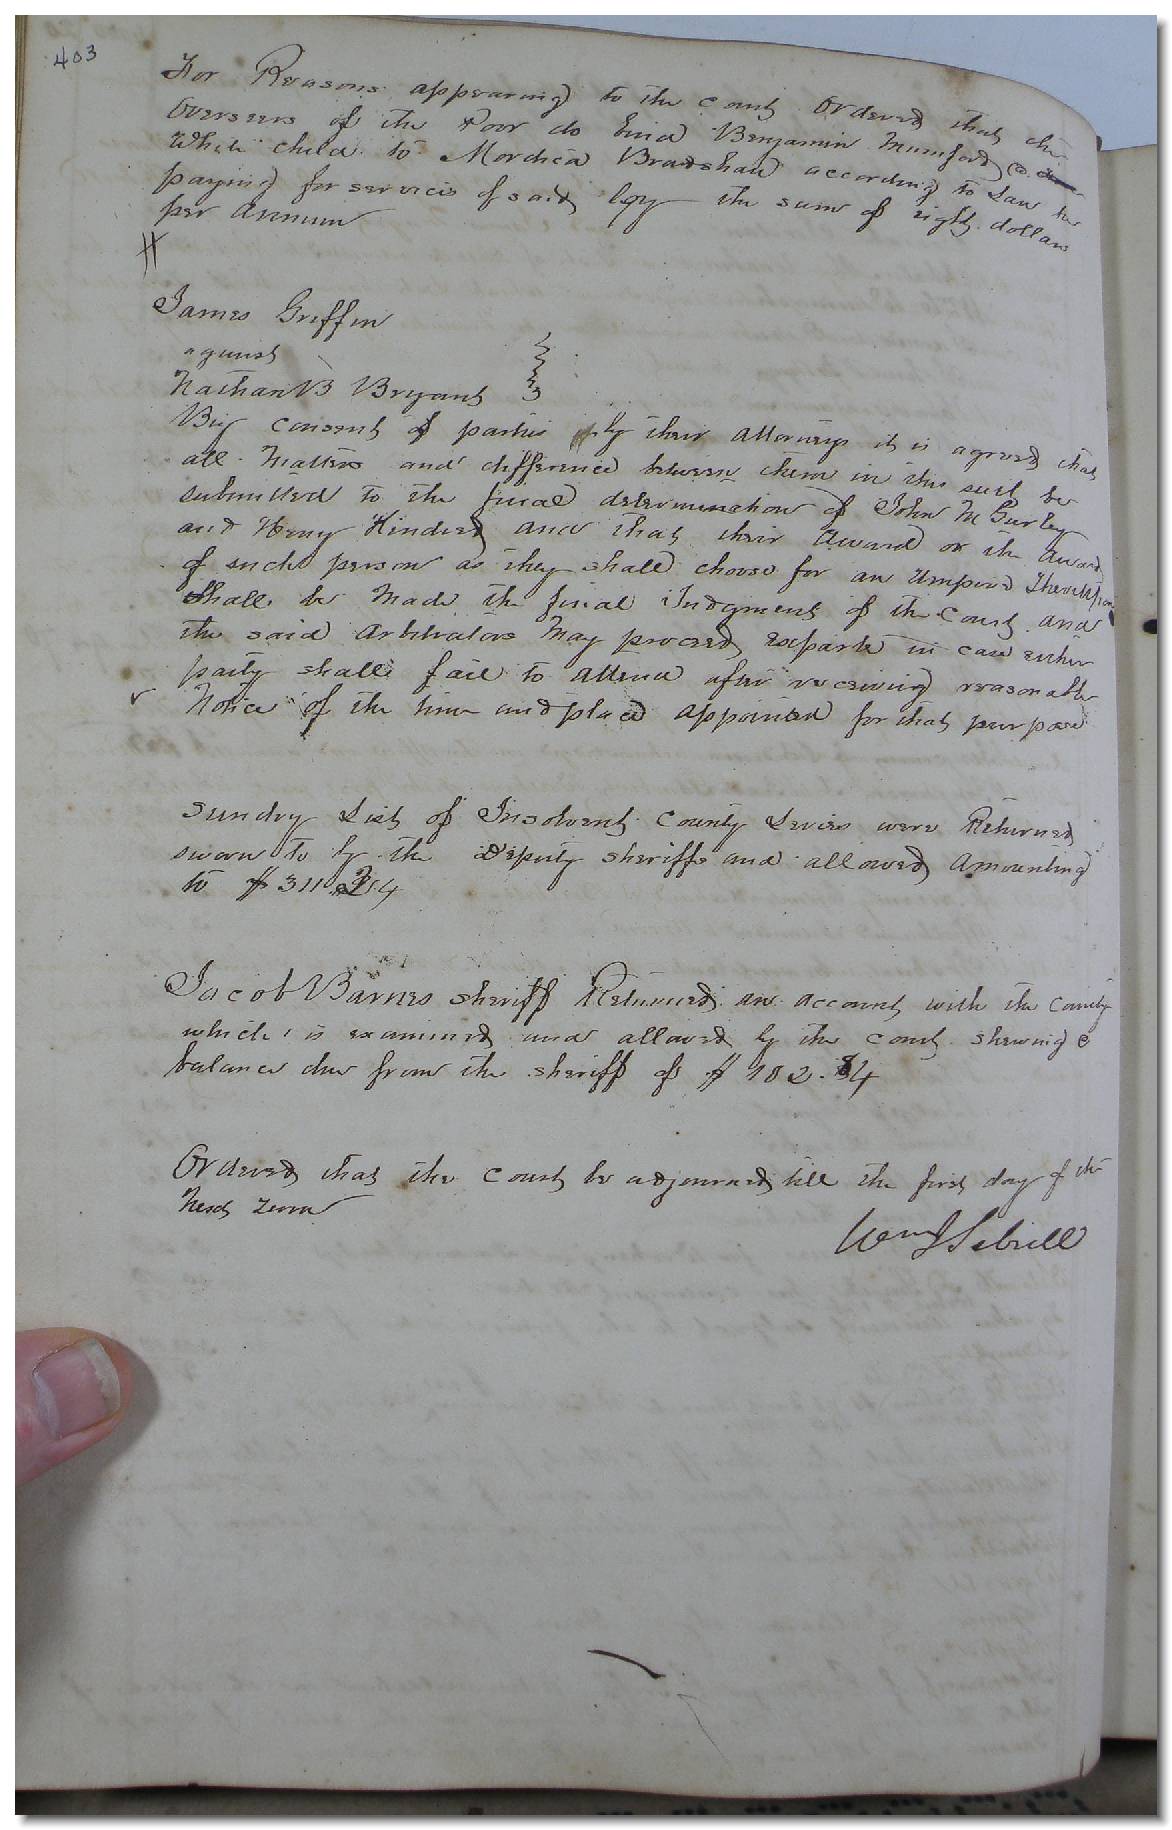 403
For Reasons appearing to the court Ordered that the
Overseers of the Poor do bind Benjamin Mumford a
White child to Mordica Bradshaw according to Law he
paying for servcis of said boy the sum of eight dollars
per Annum
James Griffin
against
Nathan B Bryant
By consent of parties by their attorneys it is agreed that
all Matters and difference between them in this suit be
submitted to the final determination of John M Gurley
and Henry Kindred and that their award or the award
of such person as they shall choose for an Umpire thereupon
Shall be Made the final Judgment of the Court and
the said Arbitrators May proceed exparte in case either
party shall fail to attend after receiving reasonable
Notice of the time and place appointed for that purpose
Sundry List of Insolvent County Levies were Returned
sworn to by the Deputy sheriffs and allowed Amounting
to $311.24
Jacob Barnes sheriff Returned an account with the County
which is examined and allowed by the court shewing a
balance due from the sheriff of $182.84
Ordered that the Court be adjourned till the first day of the
Next Term
Wm J Sebrell